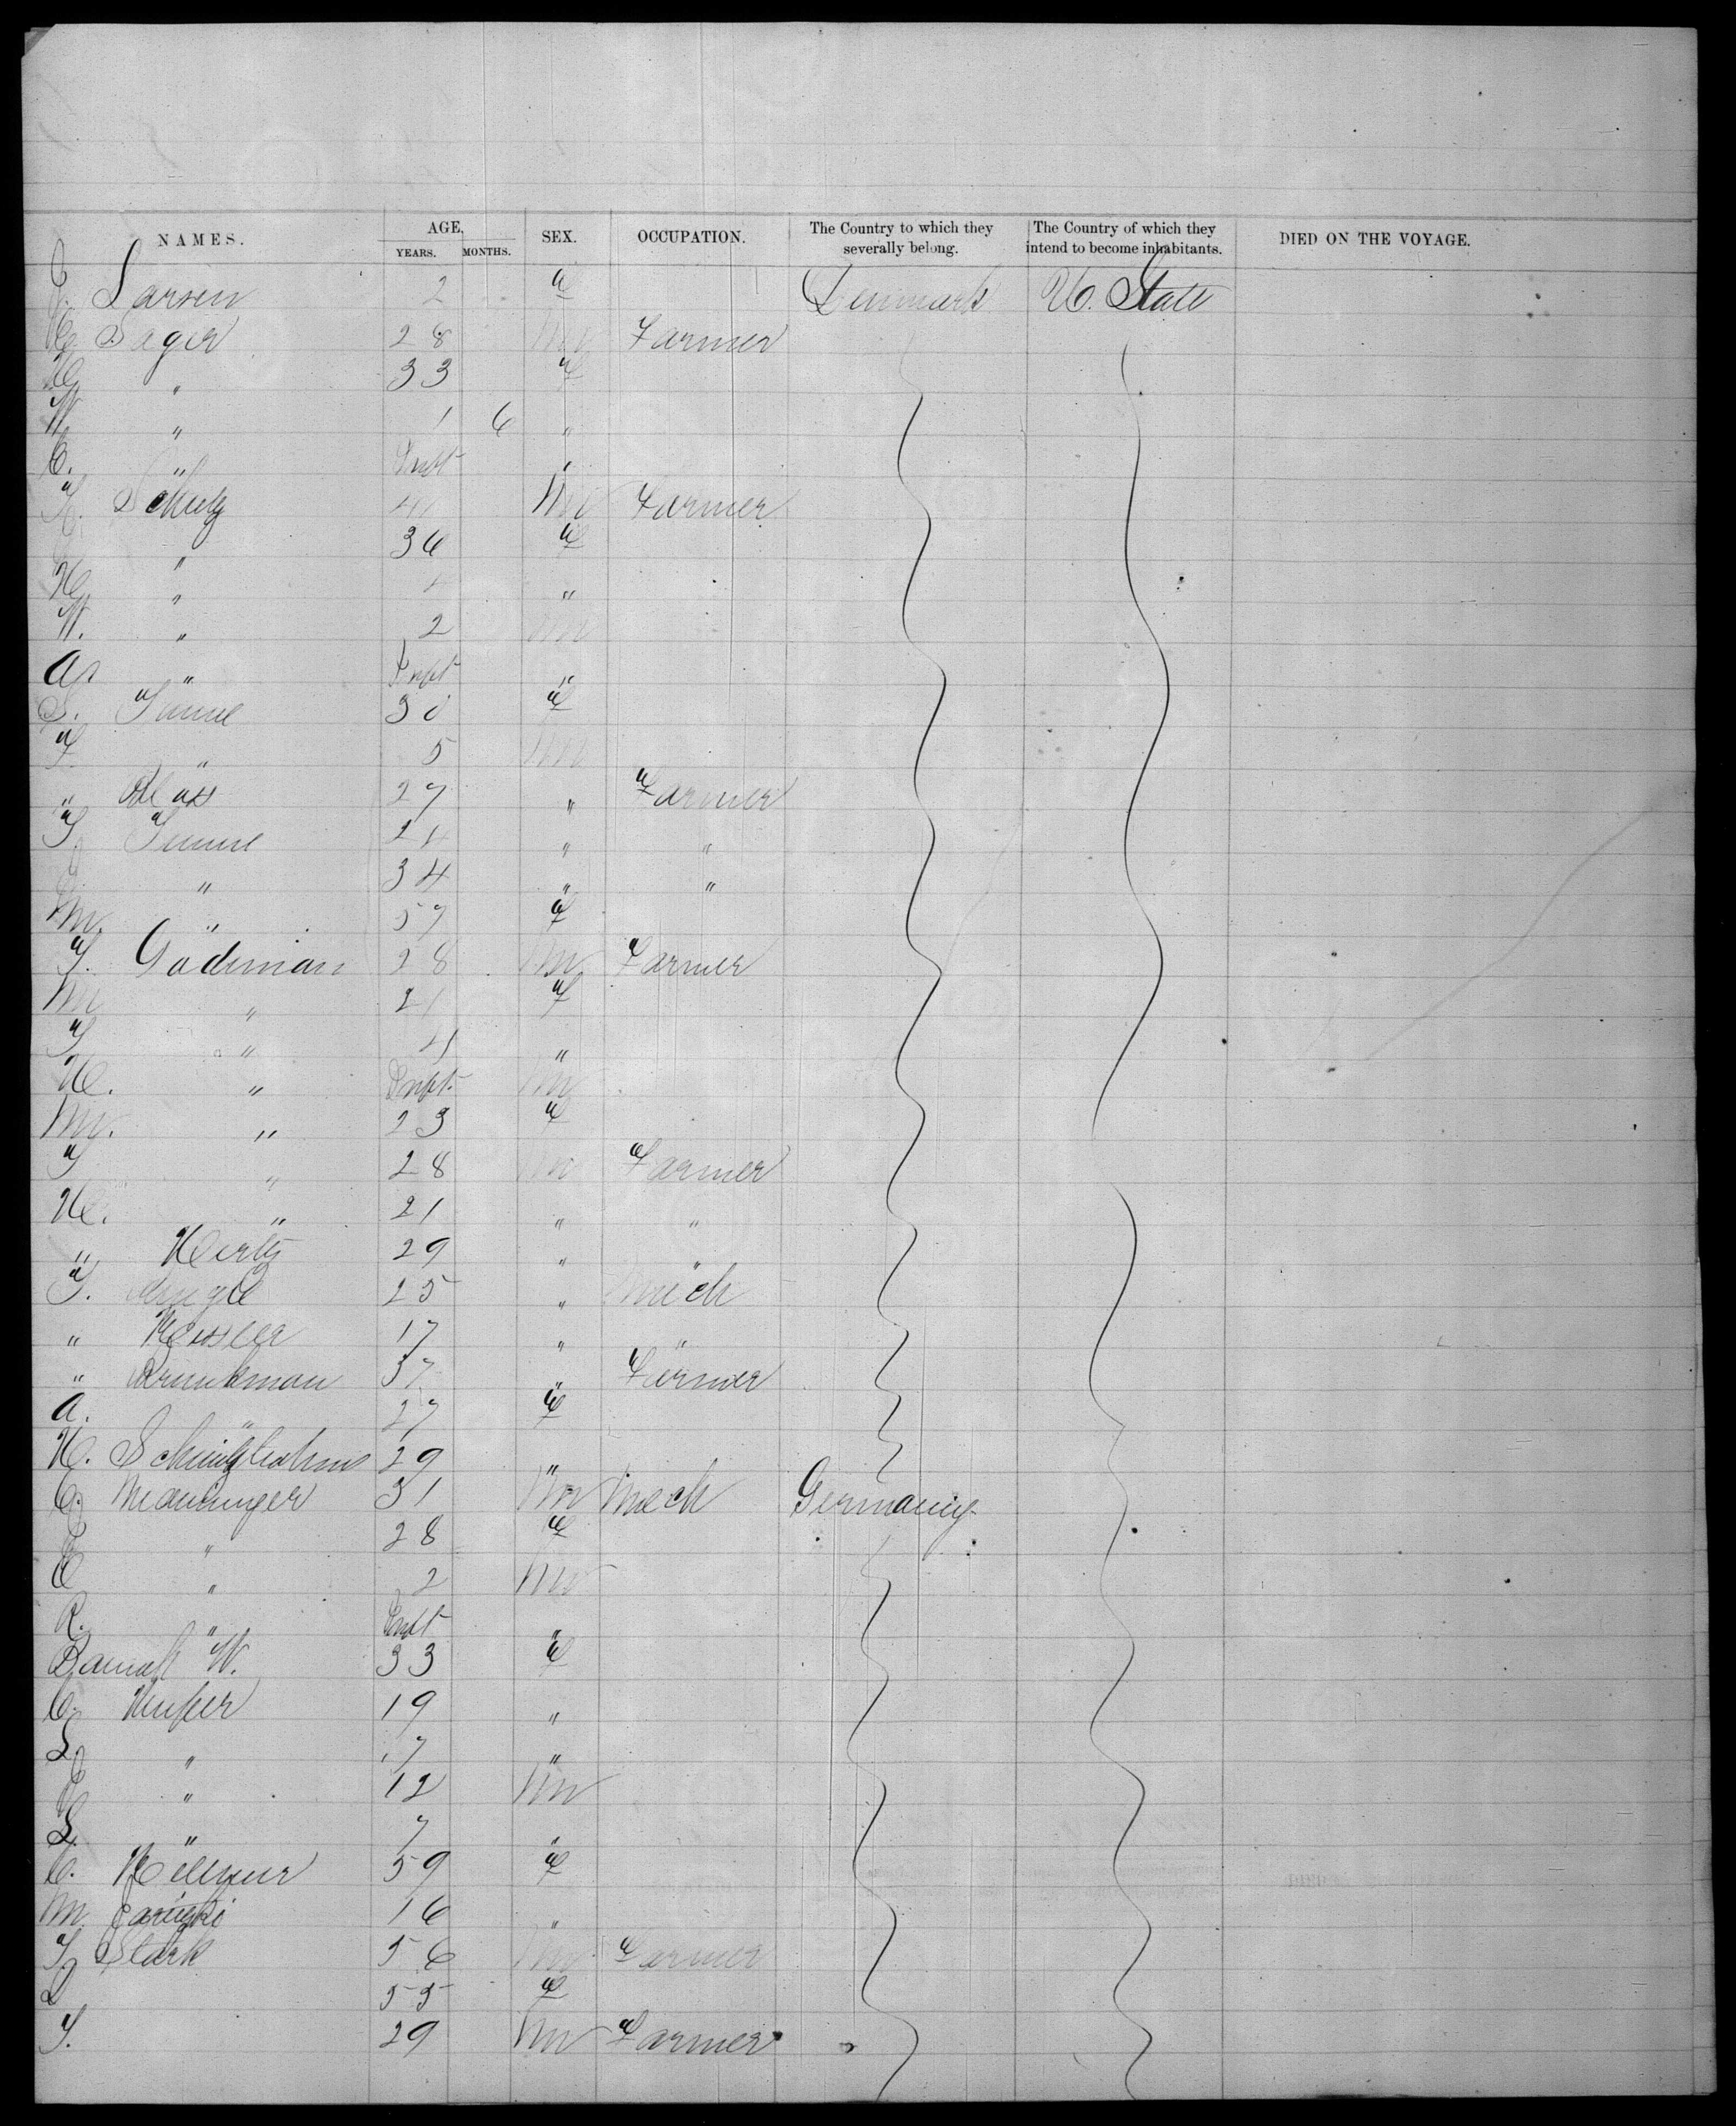 NAMES. AGE. YEARS. MONTHS. SEX. OCCUPATION. The Country to which they severally belong. The Country of which they intend to become inhabitants. DIED ON THE VOYAGE.
J. Larsen 2 F Denmark U. State
C. Sager 28 M Farmer
H. " 33 F
W. " 1 6 "
C. " Inft "
F. Schutz 41 M Farmer
" 36 F
H. " 4 "
W. " 2 M
A. " Inft "
S. Timme 30 F
F. " 5 M
" Klass 27 " Farmer
J. Timme 24 " "
J. " 34 " "
M. " 57 F
J. Gademan 28 M Farmer
M " 21 F
J " 4 "
H. " Inft M
M. " 23 F
J " 28 M Farmer
H. " 21 " "
" Hertz 29 " "
J. 25 " Mech
" Kessler 17 " "
" Brinkman 37 " Farmer
A. " 27 F
H. 29 "
C. Menninger 31 M Mech Germany
C " 28 F
C " 2 M
R. " Inft "
W. 33 F
C. 19 "
L " 17 "
J " 12 M
L " 7 "
C. 59 F
M. 16 "
J. Stark 56 M Farmer
L 55 F
J. 29 M Farmer